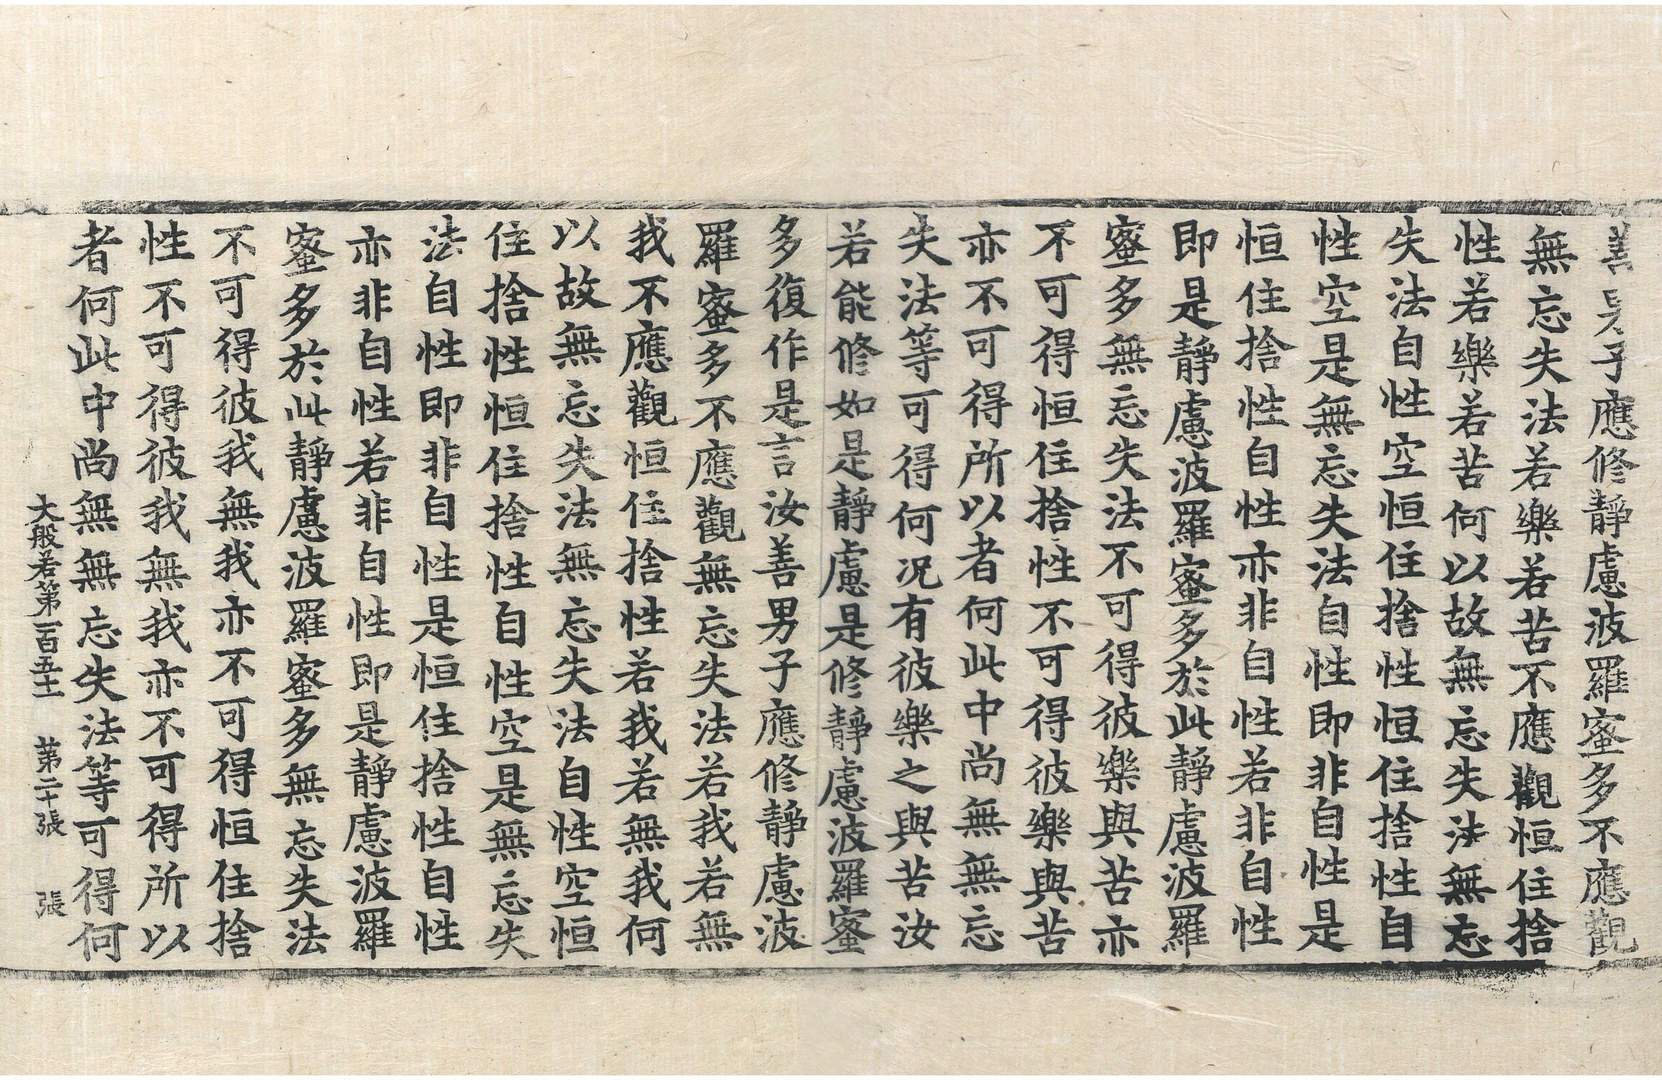 善男子應修靜慮波羅蜜多不應觀
無忘失法若樂若苦不應觀恒住捨
性若樂若苦何以故無忘失法無忘
失法自性空恒住捨性恒住捨性自
性空是無忘失法自性即非自性是
恒住捨性自性亦非自性若非自性
即是靜慮波羅蜜多於此靜慮波羅
蜜多無忘失法不可得彼樂與苦亦
不可得恒住捨性不可得彼樂與苦
亦不可得所以者何此中尚無無忘
失法等可得何況有彼樂之與苦汝
若能修如是靜慮是修靜慮波羅蜜
多復作是言汝善男子應修靜慮波
羅蜜多不應觀無忘失法若我若無
我不應觀恒住捨性若我若無我何
以故無忘失法無忘失法自性空恒
住捨性恒住捨性自性空是無忘失
法自性即非自性是恒住捨性自性
亦非自性若非自性即是靜慮波羅
蜜多於此靜慮波羅蜜多無忘失法
不可得彼我無我亦不可得恒住捨
性不可得彼我無我亦不可得所以
者何此中尚無無忘失法等可得何
大般若第一百五十 第二十張 張